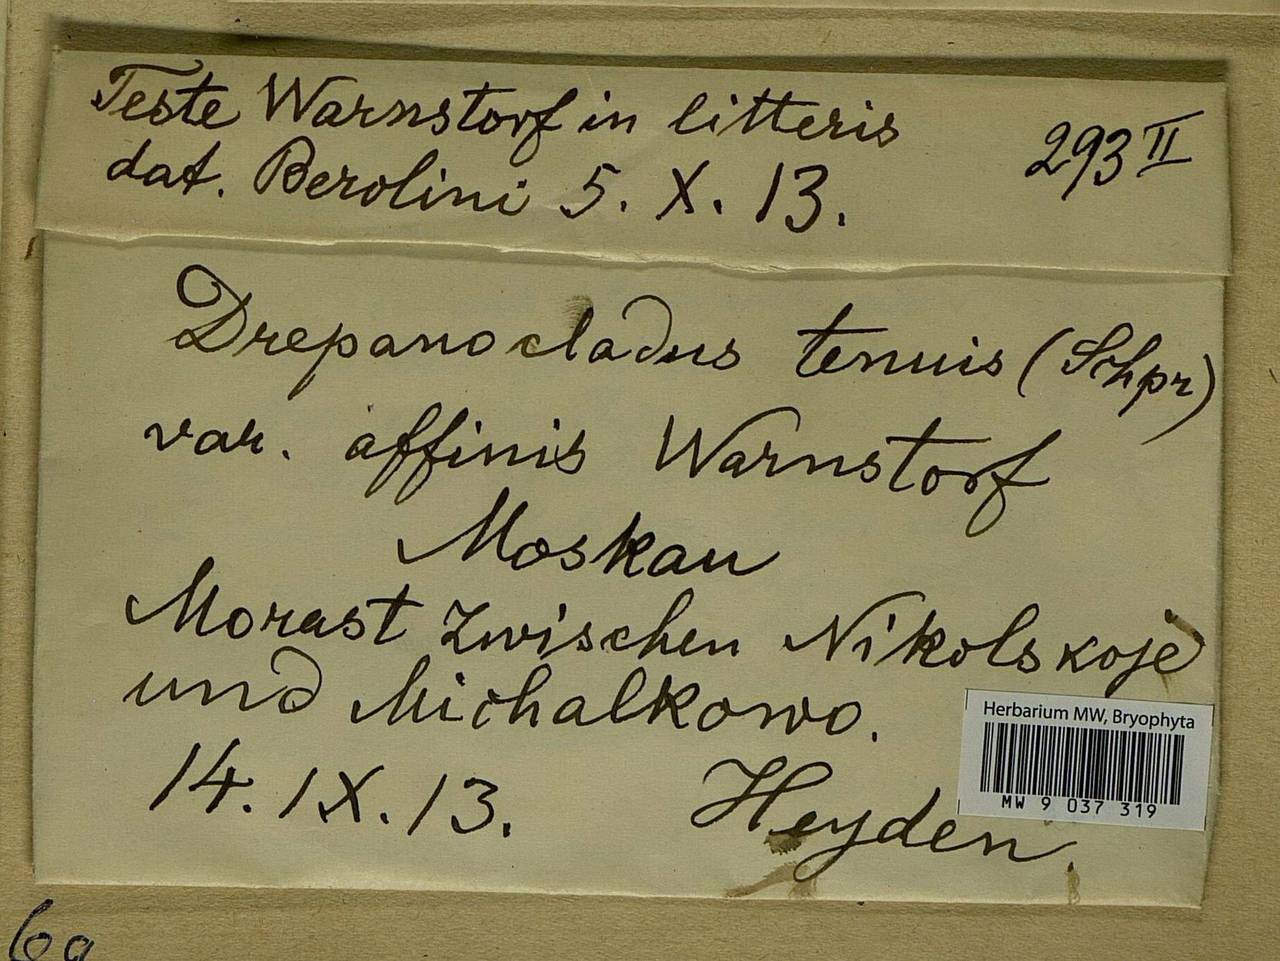 Teste Warnstorf in litteris
dat. Berolini 5. X. 13.
293 II
Drepanocladus tenuis (Schpr)
var. affinis Warnstorf
Moskau
Morast zwischen Nikolskoje
und Michalkowo.
14. IX. 13.
Heyden.
Herbarium MW, Bryophyta
MW 9 037 319